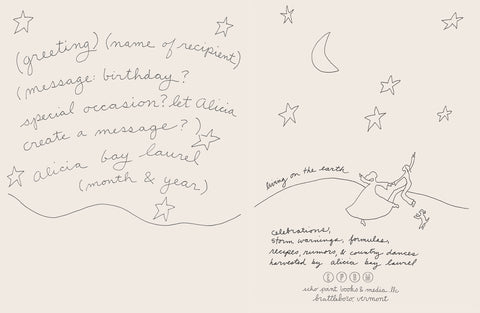 (greeting) (name of recipient)
(message: birthday?
special occasion? let Alicia
create a message?)
Alicia bay laurel
(month & year)
living on the earth
celebrations,
storm warnings, formulas,
recipes, rumors, & country dances
harvested by alicia bay laurel
echo point books & media llc
brattleboro, vermont